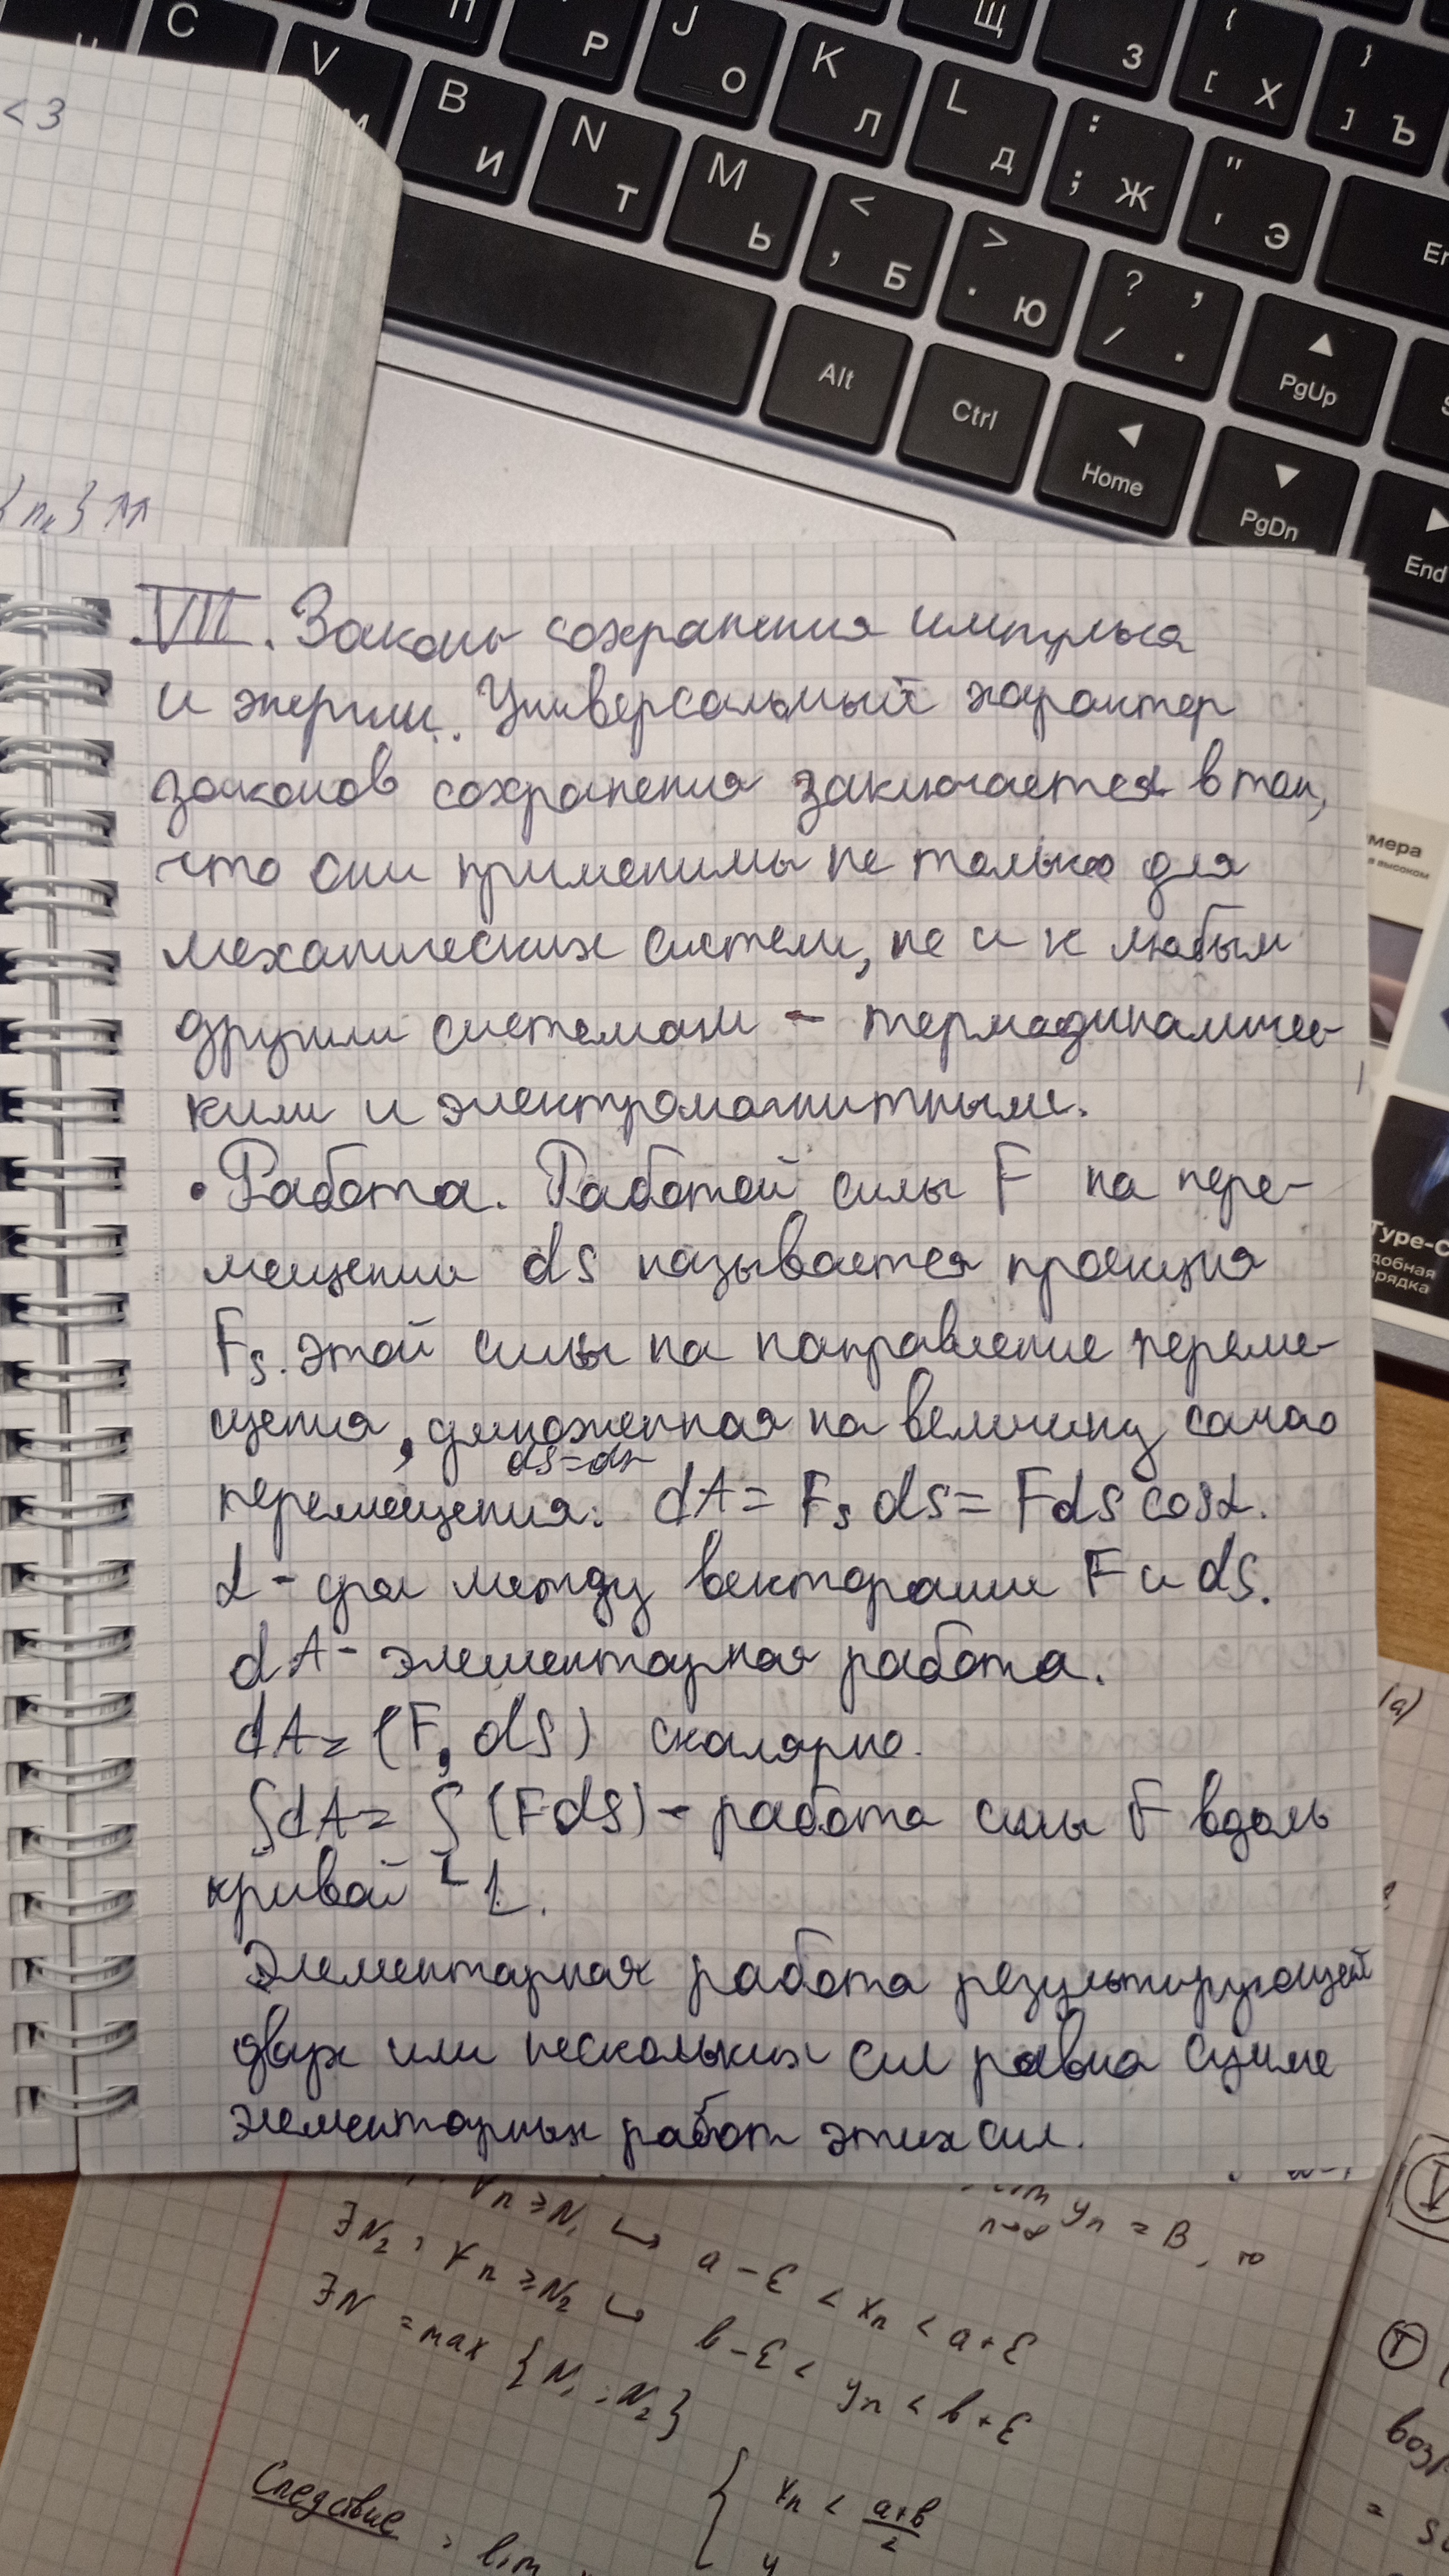 C
V
П
Р
J
О
K
Л
Щ
З
{
[ Х
}
] Ъ
B
И
N
Т
M
Ь
L
Д
:
; Ж
"
' Э
<
, Б
>
. Ю
? ,
/ .
Alt
Ctrl
PgUp
Home
PgDn
End
< 3
{n_k} ↑↑
мера
в высоком
Type-C
добная
рядка
VII. Законы сохранения импульса
и энергии. Универсальный характер
законов сохранения заключается в том,
что они применимы не только для
механических систем, но и к любым
другим системам - термодинамичес-
ким и электромагнитным.
• Работа. Работой силы F на пере-
мещении ds называется проекция
Fs этой силы на направление переме-
щения, умноженная на величину самого
ds=dr
перемещения: dA = Fs ds = Fds cosα.
α - угол между векторами F и ds.
dA - элементарная работа.
dA = (F, ds) скалярно.
∫dA = ∫ (Fds) - работа силы F вдоль
L
кривой L.
Элементарная работа результирующей
двух или нескольких сил равна сумме
элементарных работ этих сил.
∀n ≥ N₁ ↪ a - ε < xₙ < a + ε
lim yₙ = B, то
n→∞
∃N₂, ∀n ≥ N₂ ↪ b - ε < yₙ < b + ε
∃N = max {N₁; N₂}
Следствие: lim
{ xₙ < (a+b)/2
(a)
возр
= s